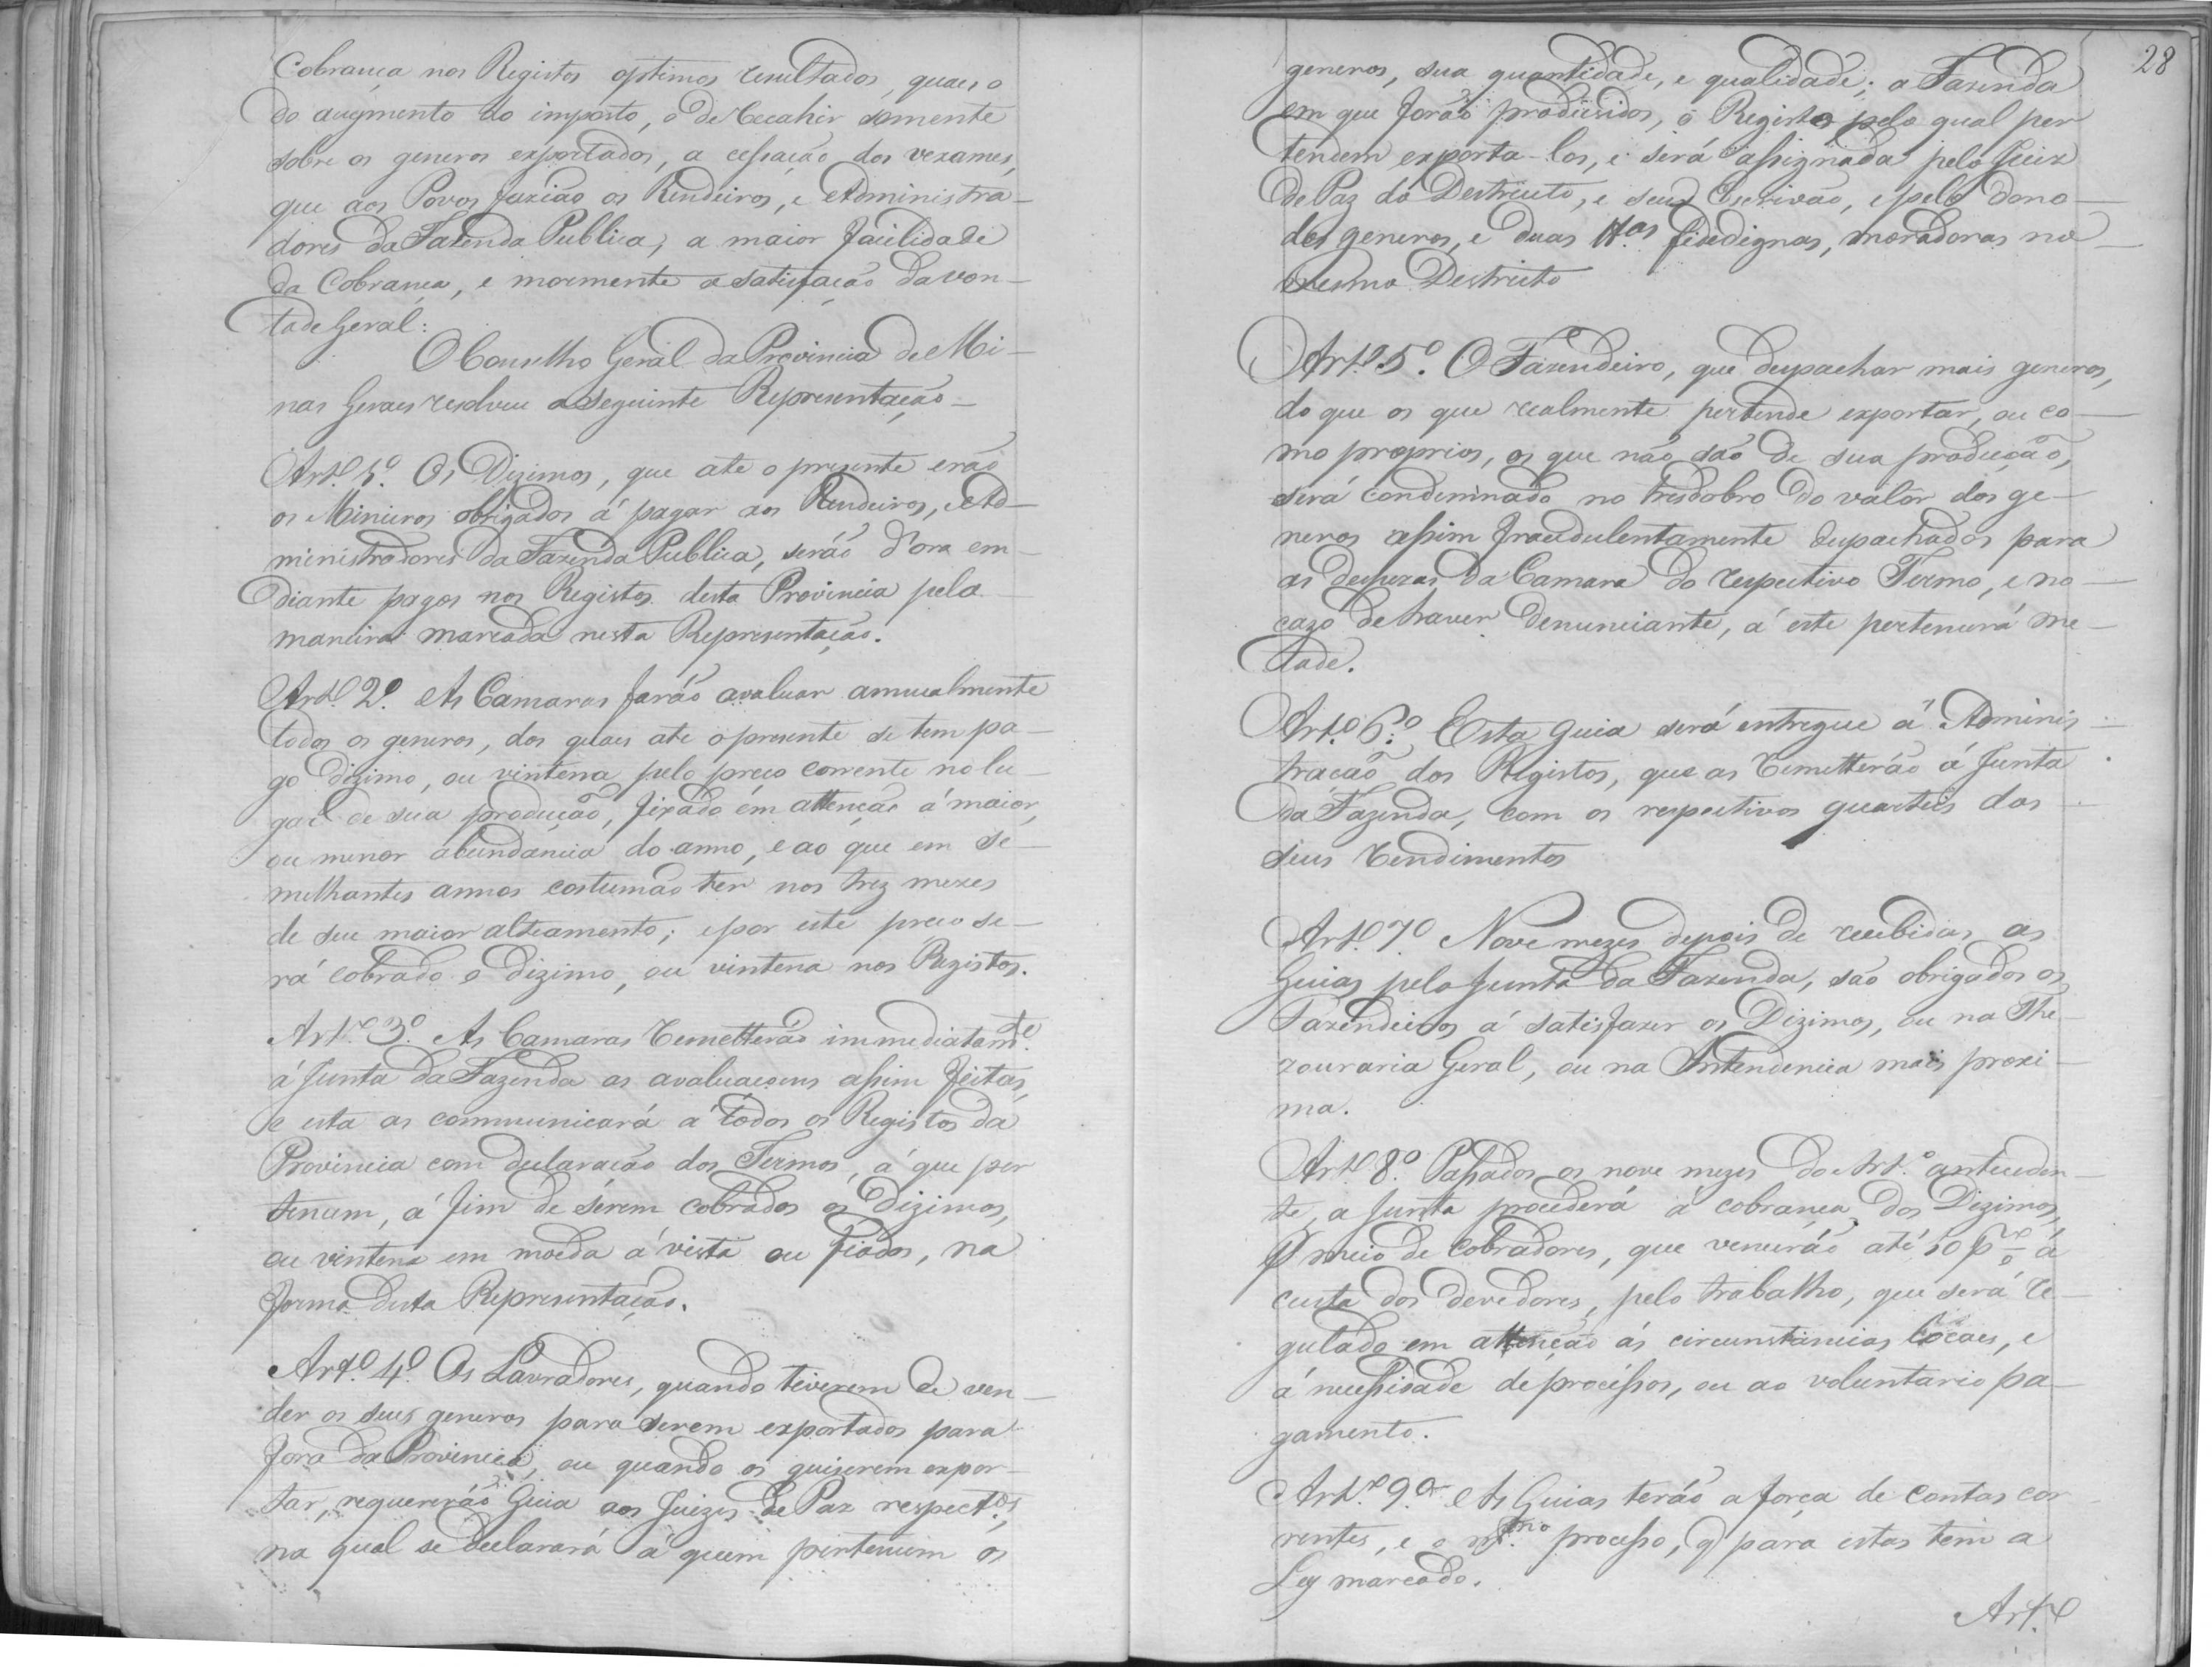 Cobrança nos Registos optimos resultados, quaes o
do augmento do imposto, o de recahir somente
sobre os generos exportados, a cessação dos vexames,
que aos Povos fazião os Rendeiros, e Administra-
dores da Fazenda Publica, a maior facilidade
da Cobrança, e mormente a satisfação da von-
tade Geral:
O Conselho Geral da Provincia de Mi-
nas Geraes resolveu a seguinte Representação-
Art.º 1.º Os Dizimos, que ate o presente erão
os Mineiros obrigados á pagar aos Rendeiros, e Ad-
ministradores da Fazenda Publica, serão d'ora em-
diante pagos nos Registos desta Provincia pela
maneira marcada nesta Representação.
Art.º 2.º As Camaras farão avaluar annualmente
todos os generos, dos quaes ate o presente se tem pa-
go dizimo, ou vintena pelo preço corrente no lu-
gar de sua produção, fixado em attenção á maior,
ou menor abundancia do anno, e ao que em se-
melhantes annos costumão ter nos trez mezes
de seu maior alteamento; e por este preço se-
rá cobrado o dizimo, ou vintena nos Registos.
Art.º 3.º As Camaras remetterão immediatam.te
á Junta da Fazenda as avaluaçoens assim feitas,
e esta as communicará á todos os Registos da
Provincia com declaração dos Termos, á que per
tencem, á fim de serem cobrados os Dizimos,
ou vintena em moeda á vista ou fiados, na
forma desta Representação.
Art.º 4.º Os Lavradores, quando tiverem de ven-
der os seus generos para serem exportados para
fora da Provincia, ou quando os quiserem expor-
tar, requererão Guia aos Juizes de Paz respect.os,
na qual se declarará a quem pertencem os
28
generos, sua quantidade, e qualidade; a Fazenda
em que forão produsidos, o Registo pelo qual per
tendem exporta-los, e será assignada pelo Juiz
de Paz do Destricto, e seu Escrivão, e pelo dono
dos generos, e duas tt.as fidedignas, moradoras no
mesmo Destricto
Art.º 5.º O Fazendeiro, que despachar mais generos,
do que os que realmente pertende exportar, ou co-
mo proprios, os que não são de sua producção,
será condemnado no tresdobro do valor dos ge-
neros assim fraudulentamente despachados para
as despezas da Camara do respectivo Termo, e no
cazo de haver denunciante, á este pertencerá me-
tade.
Art.º 6.º Esta Guia será entregue á Adminis-
tração dos Registos, que as remetterão á Junta
da Fazenda, com os respectivos quarteis dos
seus rendimentos
Art.º 7.º Nove mezes depois de recebidas as
Guias pela Junta da Fazenda, são obrigados os
Fazendeiros á satisfazer os Dizimos, ou na The-
zouraria Geral, ou na Intendencia mais proxi-
ma.
Art.º 8.º Passados os nove mezes do Art.º anteceden-
te, a Junta procederá á cobrança dos Dizimos,
p meio de Cobradores, que vencerão até 10 p% á
custa dos devedores, pelo trabalho, que será re-
gulado em attenção ás circunstancias locaes, e
á necessidade de processos, ou ao voluntario pa-
gamento.
Art.º 9.º As Guias terão a força de contas cor-
rentes, e o m.mo processo, q para estas tem a
Ley marcado.
Art.º